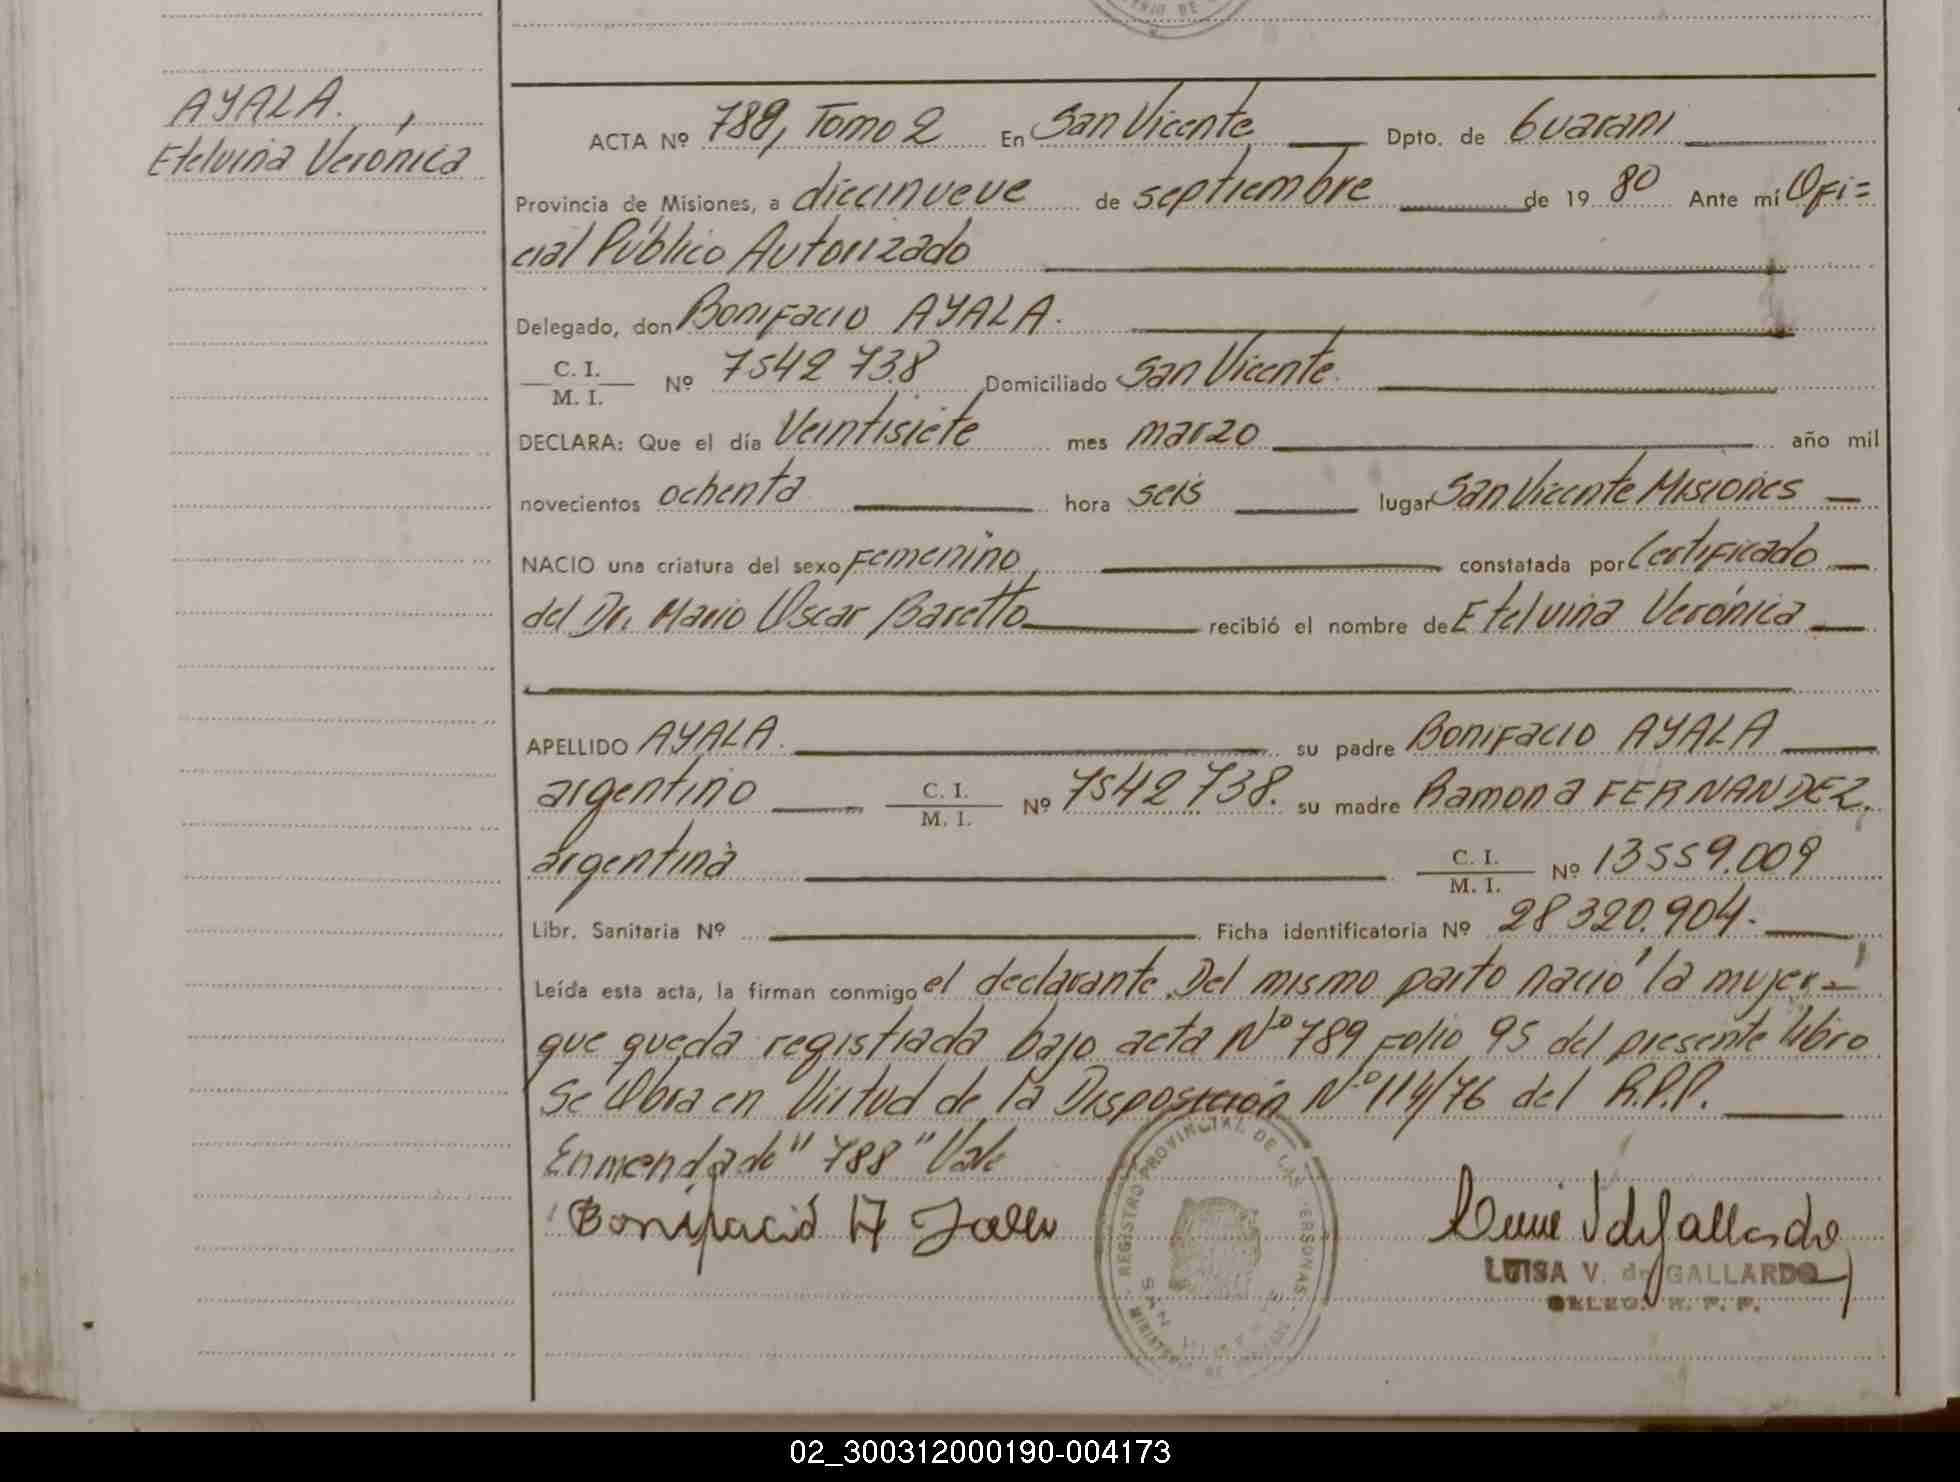 AYALA.,
Etelvina Verónica
ACTA Nº 788, Tomo 2 En San Vicente Dpto. de Guaraní
Provincia de Misiones, a diecinueve de septiembre de 19 80 Ante mí Ofi=
cial Público Autorizado
Delegado, don Bonifacio AYALA.
C. I.
M. I.
Nº 7542 738 Domiciliado San Vicente.
DECLARA: Que el día Veintisiete mes marzo año mil
novecientos ochenta hora seis lugar San Vicente Misiones
NACIO una criatura del sexo Femenino, constatada por Certificado
del Dr. Mario Oscar Baretto recibió el nombre de Etelvina Verónica
APELLIDO AYALA. su padre Bonifacio AYALA
argentino C. I.
M. I. Nº 7542 738. su madre Ramona FERNANDEZ.
argentina C. I.
M. I. Nº 13559.009
Libr. Sanitaria Nº Ficha identificatoria Nº 28320.904.
Leída esta acta, la firman conmigo el declarante. Del mismo parto nació la mujer
que queda registrada bajo acta Nº 789 Folio 95 del presente libro
Se Obra en Virtud de la Disposición Nº 114/76 del R.P.P.
Enmendado "788" Vale
Bonifacio A
REGISTRO PROVINCIAL DE LAS PERSONAS
LUISA V. de GALLARDO
DELEG. R. P. P.
02_300312000190-004173